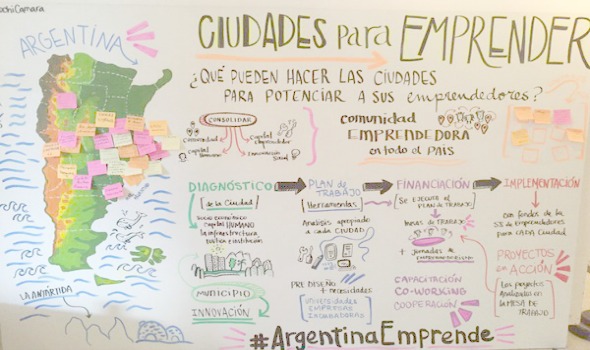 ochiCamara
ARGENTINA
CIUDADES para EMPRENDER
¿QUÉ PUEDEN HACER LAS CIUDADES
PARA POTENCIAR A SUS emprendedores?
CONSOLIDAR
Comunidad
Capital
Capital
Social
comunidad
EMPRENDEDORA
en todo el PAÍS
DIAGNÓSTICO
de la Ciudad
socio económico
capital HUMANO
la infraestructura
MUNICIPIO
INNOVACIÓN
PLAN de
TRABAJO
Herramientas
Análisis apropiado
a cada CIUDAD
PRE DISEÑO
+ necesidades
Universidades
EMPRESAS
INCUBADORAS
FINANCIACIÓN
Se EJECUTA el
PLAN de TRABAJO
MESAS de TRABAJO
+ Jornadas de
CAPACITACIÓN
CO-WORKING
COOPERACIÓN
IMPLEMENTACIÓN
con fondos de la
SS de Emprendedores
para CADA Ciudad
PROYECTOS
en ACCIÓN
Los proyectos
Analizados en
la MESA DE
TRABAJO
LA ANTÁRTIDA
#ArgentinaEmprende